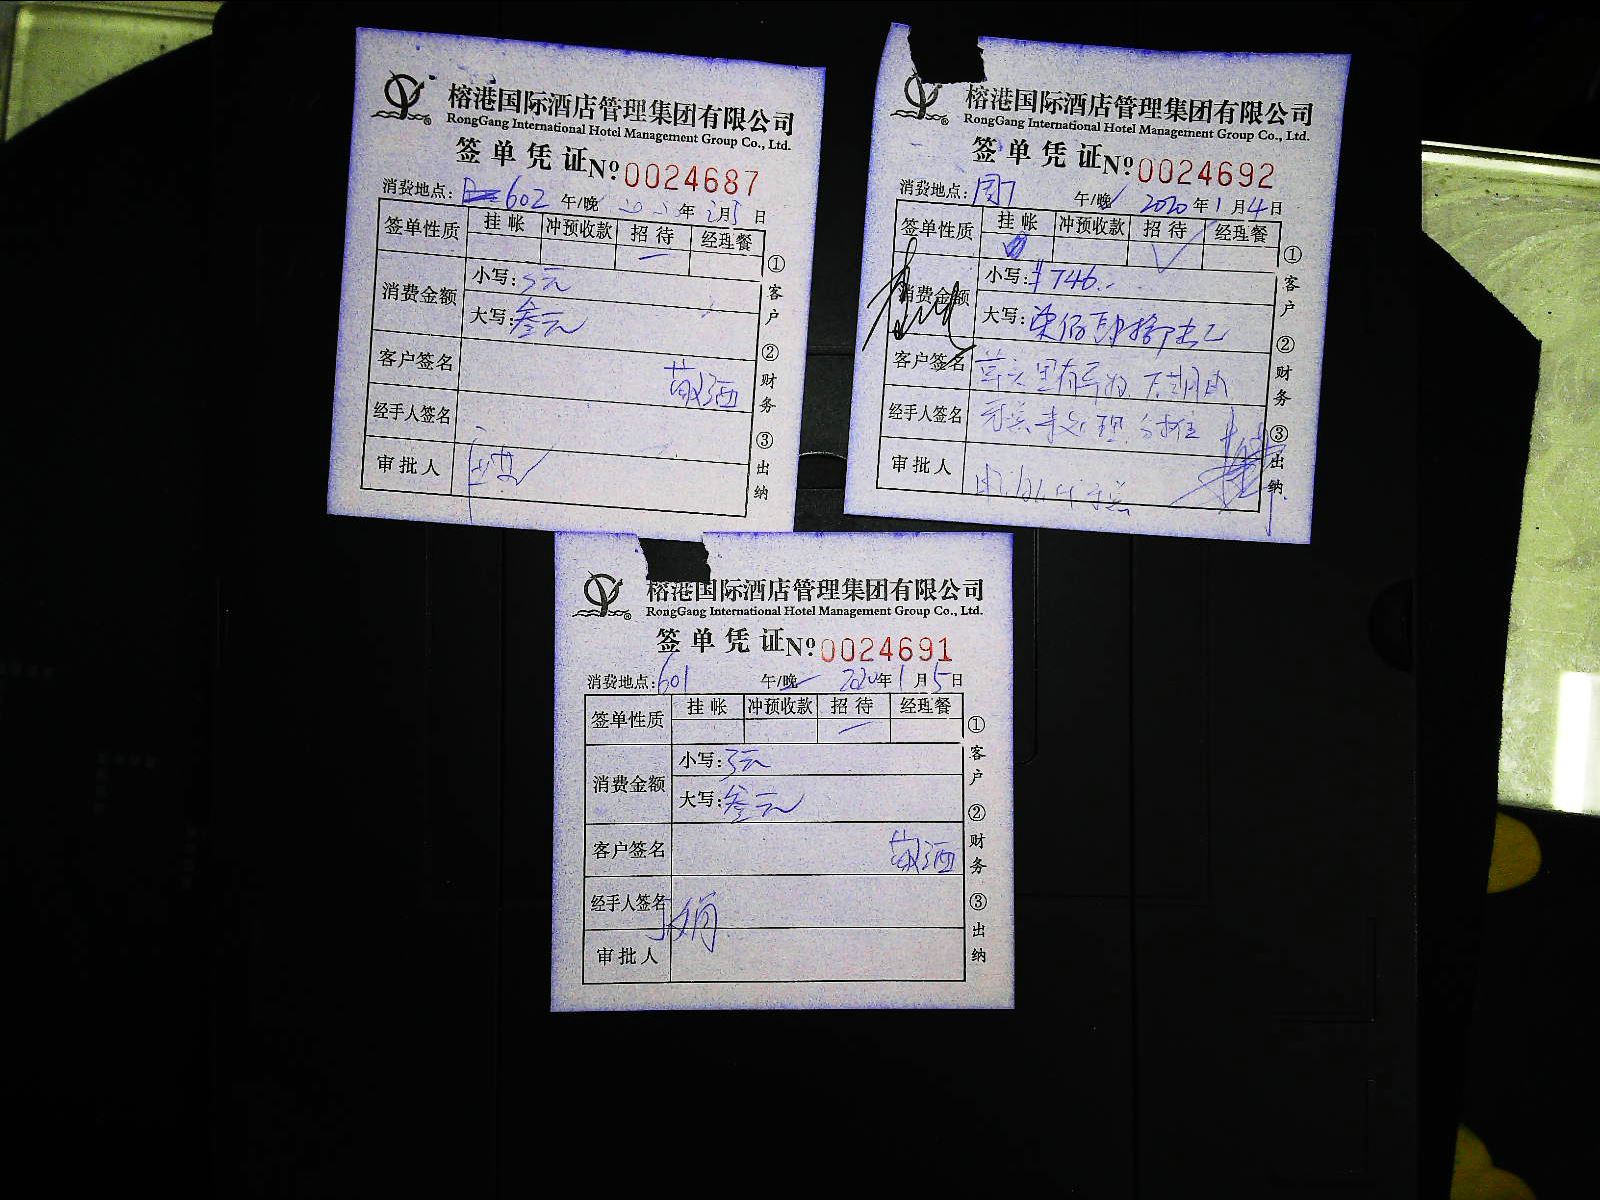 榕港国际酒店管理集团有限公司
RongGang International Hotel Management Group Co., Ltd.
签单凭证 Nº 0024687
消费地点: 602 午/晚 年 月5日
签单性质 挂帐 冲预收款 招待 经理餐
消费金额 小写: 3元
大写: 叁元
客户签名 敬酒
经手人签名
审批人
①客户 ②财务 ③出纳
榕港国际酒店管理集团有限公司
RongGang International Hotel Management Group Co., Ltd.
签单凭证 Nº 0024692
消费地点: 午/晚 2020年1月4日
签单性质 挂帐 冲预收款 招待 经理餐
消费金额 小写: 746
大写: 柒佰肆拾陆元
客户签名
经手人签名
审批人
①客户 ②财务 ③出纳
榕港国际酒店管理集团有限公司
RongGang International Hotel Management Group Co., Ltd.
签单凭证 Nº 0024691
消费地点: 601 午/晚 2020年1月5日
签单性质 挂帐 冲预收款 招待 经理餐
消费金额 小写: 3元
大写: 叁元
客户签名 敬酒
经手人签名
审批人
①客户 ②财务 ③出纳